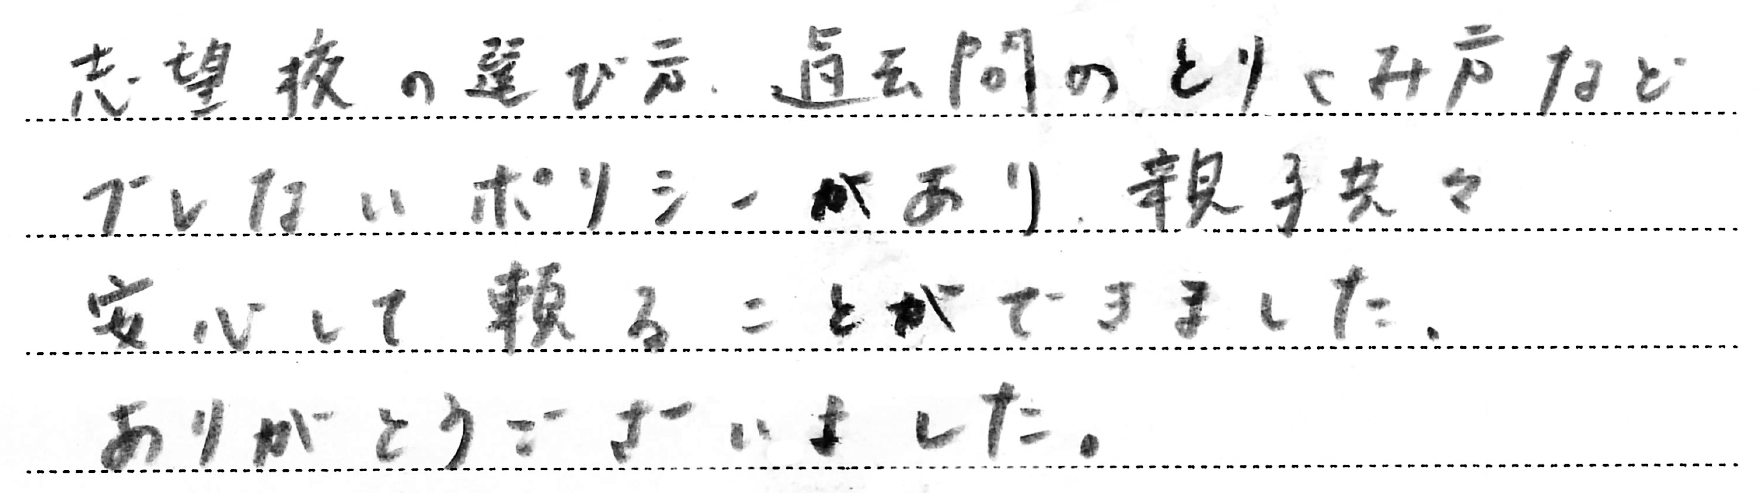 志望校の選び方、過去問のとりくみ方など
ブレないポリシーがあり、親子共々
安心して頼ることができました。
ありがとうございました。